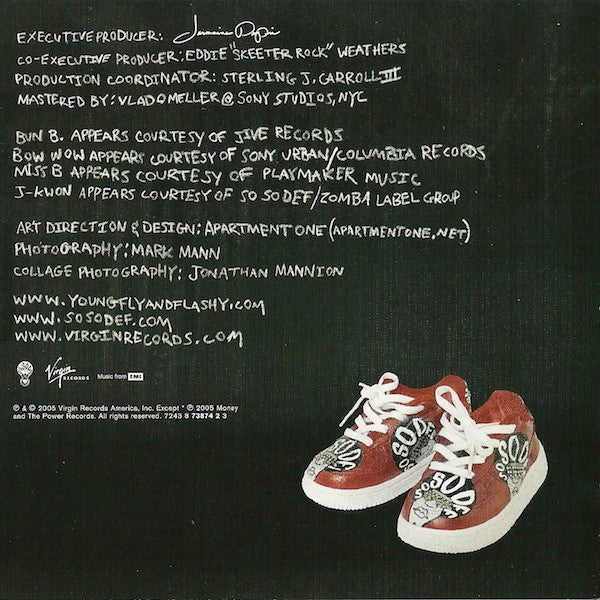 EXECUTIVE PRODUCER: Jermaine Dupri
CO-EXECUTIVE PRODUCER: EDDIE "SKEETER ROCK" WEATHERS
PRODUCTION COORDINATOR: STERLING J. CARROLL III
MASTERED BY: VLADO MELLER @ SONY STUDIOS, NYC
BUN B. APPEARS COURTESY OF JIVE RECORDS
BOW WOW APPEARS COURTESY OF SONY URBAN/COLUMBIA RECORDS
MISS B APPEARS COURTESY OF PLAYMAKER MUSIC
J-KWON APPEARS COURTESY OF SO SO DEF/ZOMBA LABEL GROUP
ART DIRECTION & DESIGN: APARTMENT ONE (APARTMENTONE.NET)
PHOTOGRAPHY: MARK MANN
COLLAGE PHOTOGRAPHY: JONATHAN MANNION
WWW.YOUNGFLYANDFLASHY.COM
WWW.SOSODEF.COM
WWW.VIRGINRECORDS.COM
Virgin RECORDS Music from EMI
℗ & © 2005 Virgin Records America, Inc. Except * ℗ 2005 Money
and The Power Records. All rights reserved. 7243 8 73874 2 3
SO DE
SO SO DE